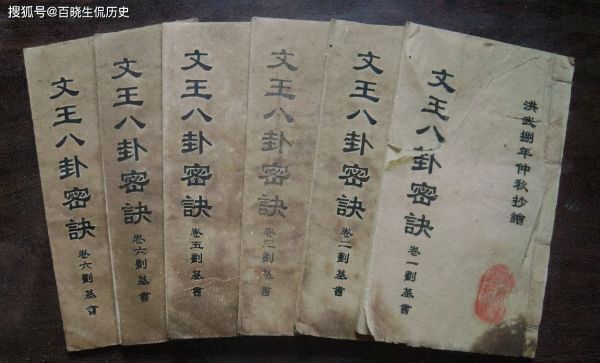 搜狐号@百晓生侃历史
洪武捌年仲秋抄繪
文王八卦密訣 卷一劉基書
文王八卦密訣 卷二劉基書
文王八卦密訣 卷 劉基書
文王八卦密訣 卷五劉基書
文王八卦密訣 卷六劉基書
文王八卦密訣 卷六劉基書